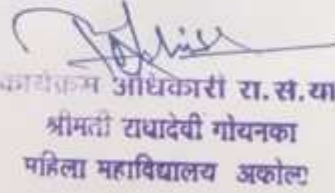 कार्यक्रम अधिकारी रा.सं.या
श्रीमती राधादेवी गोयनका
महिला महाविद्यालय अकोला